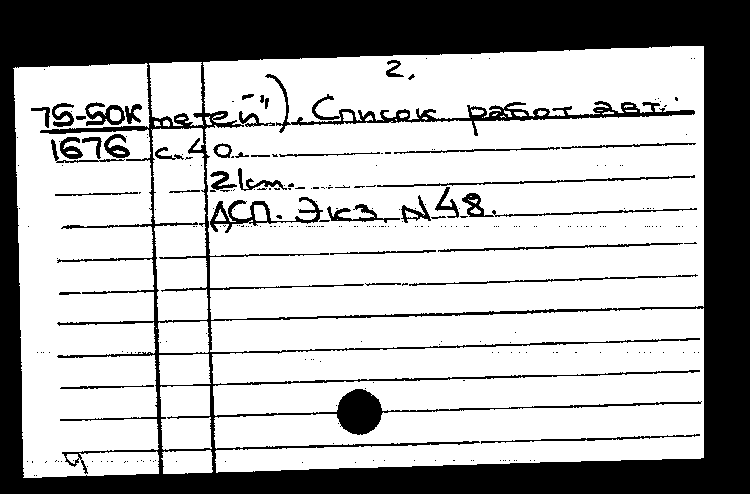 2.
75-50к тетей"). Список работ авт.:
1676 с. 40.
21см.
ДСП. Экз. N48.
ч